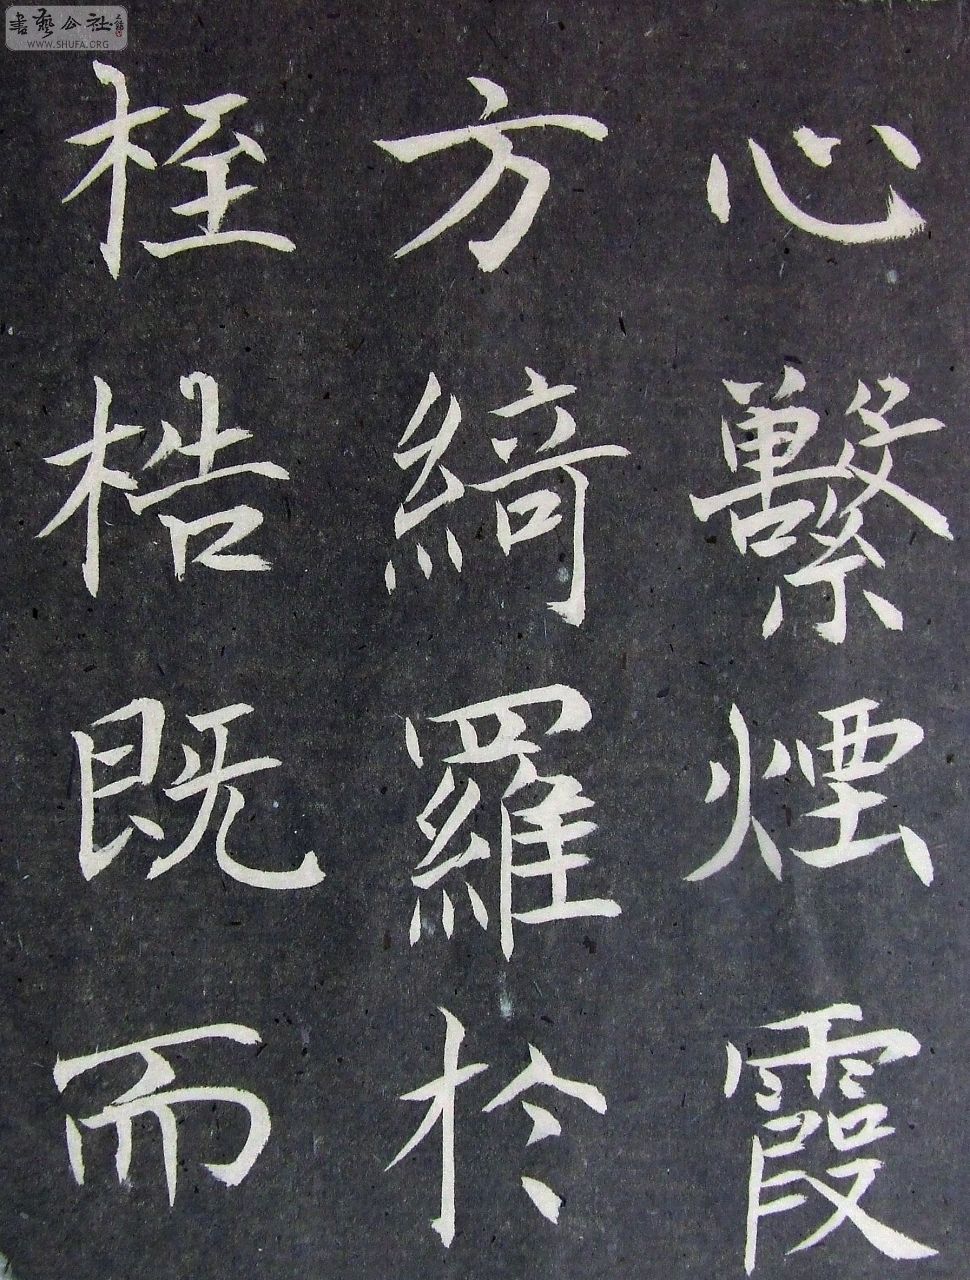 心繫煙霞
方綺羅於
桎梏既而
書藝公社
WWW.SHUFA.ORG